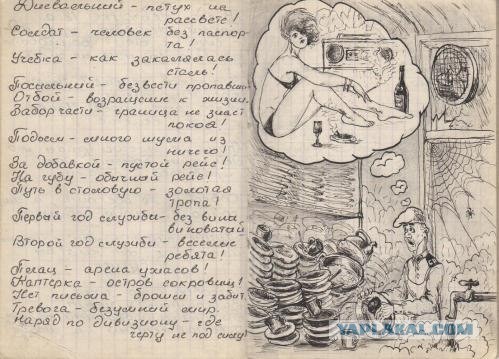 Дневальный - петух на
рассвете!
Солдат - человек без паспор-
та!
Учебка - как закалялась
сталь!
Посыльный - безвести пропавший
Отбой - возвращение к жизни.
Забор части - граница не знает
покоя!
Подъем - много шума из
ничего!
За добавкой - пустой рейс!
На губу - обычный рейс!
Путь в столовую - золотая
тропа!
Первый год службы - без вины
виноватый
Второй год службы - веселые
ребята!
Плац - арена ужасов!
Каптерка - остров сокровищ!
Нет письма - броши и забит.
Тревога - безумный мир.
Наряд по дивизиону - где
черту не под силу!
YAPLAKAL.COM